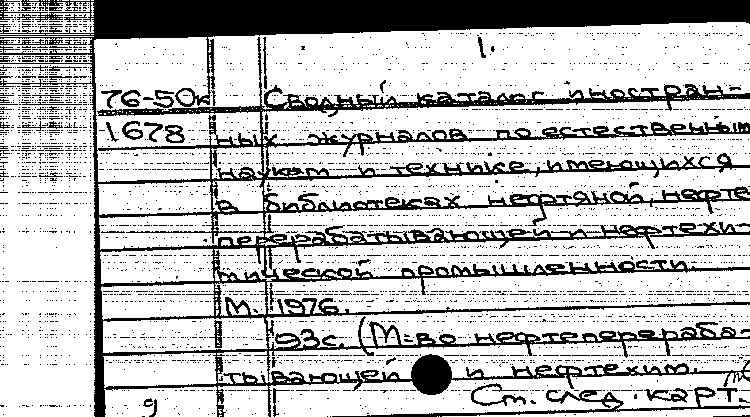 1.
76-50к Сводный каталог иностран-
1678 ных журналов по естественным
наукам и технике, имеющихся
в библиотеках нефтяной, нефте
перерабатывающей и нефтехи-
мической промышленности.
М. 1976.
93с. (М-во нефтеперераба-
тывающей и нефтехим.
См. след. карт.
9